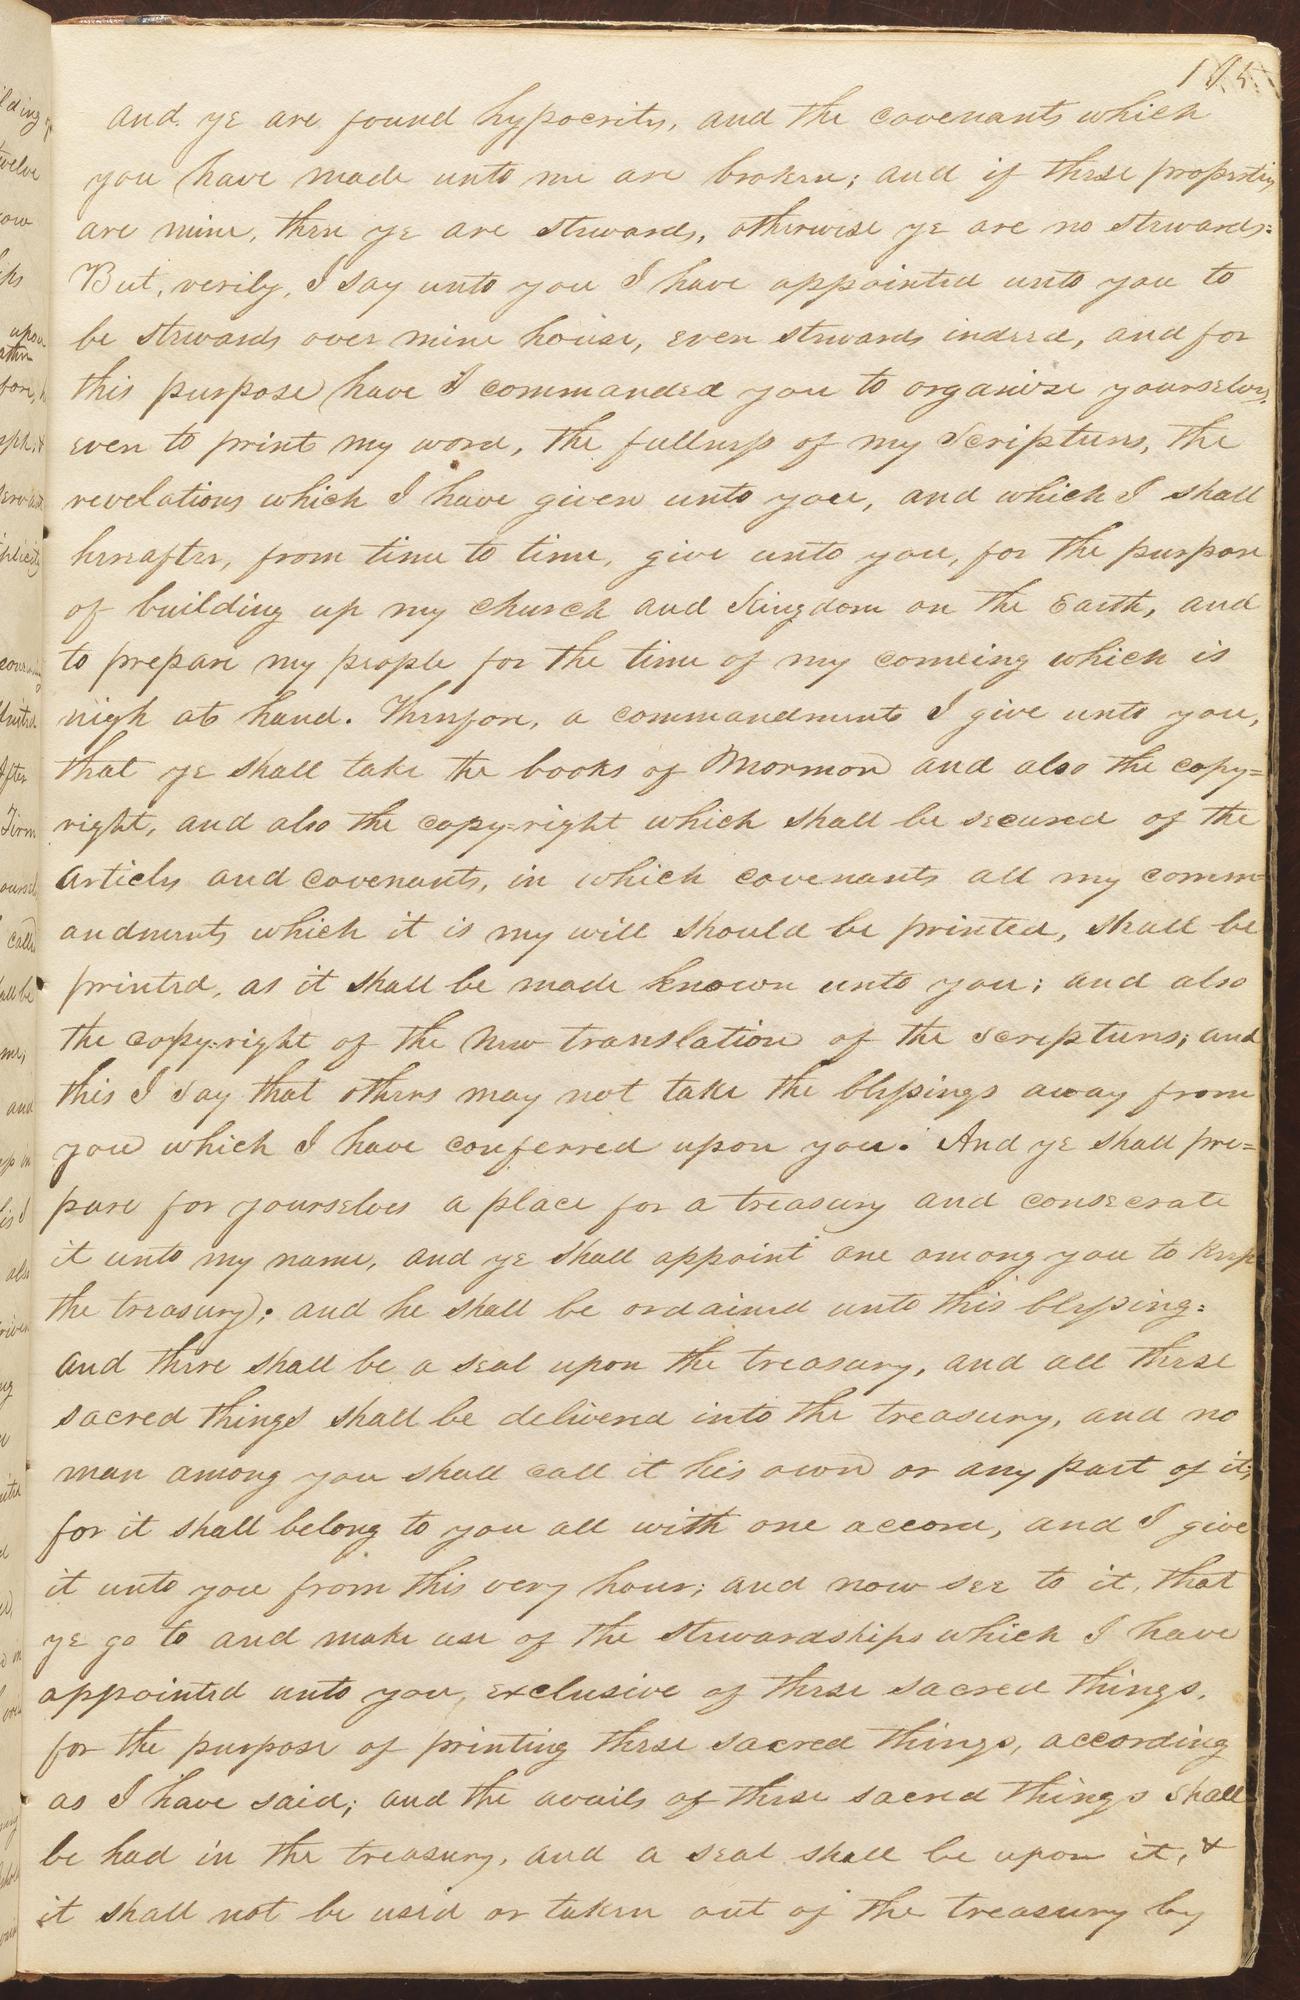 and ye are found hypocrits, and the covenants which
you have made unto me are broken; and if these properties
are mine, then ye are stewards, otherwise ye are no stewards:
But, verily, I say unto you I have appointed unto you to
be stewards over mine house, even stewards indeed, and for
this purpose have I commanded you to organize yourselves,
even to print my word, the fullness of my Scriptures, the
revelations which I have given unto you, and which I shall
hereafter, from time to time, give unto you, for the purpose
of building up my church and Kingdom on the Earth, and
to prepare my people for the time of my comeing which is
nigh at hand. Therefore, a commandment I give unto you,
that ye shall take the books of Mormon and also the copy=
right, and also the copy=right which shall be secured of the
articles and covenants, in which covenants all my comm=
andments which it is my will should be printed, shall be
printed, as it shall be made known unto you; and also
the copy=right of the New translation of the scriptures; and
this I say that others may not take the blessings away from
you which I have conferred upon you. And ye shall pre=
pare for yourselves a place for a treasury and consecrate
it unto my name, and ye shall appoint one among you to keep
the treasury; and he shall be ordained unto this blessing:
and there shall be a seal upon the treasury, and all these
sacred things shall be delivered into the treasury, and no
man among you shall call it his own or any part of it,
for it shall belong to you all with one accord, and I give
it unto you from this very hour; and now see to it, that
ye go to and make use of the stewardships which I have
appointed unto you, exclusive of these sacred things,
for the purpose of printing these sacred things, according
as I have said; and the avails of these sacred things shall
be had in the treasury, and a seal shall be upon it, &
it shall not be used or taken out of the treasury by